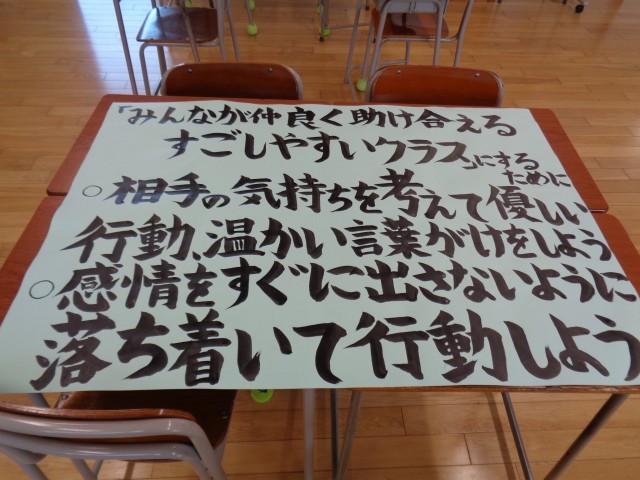 「みんなが仲良く助け合える
すごしやすいクラス」にする
ために
○相手の気持ちを考えて優しい
行動、温かい言葉がけをしよう
○感情をすぐに出さないように
落ち着いて行動しよう